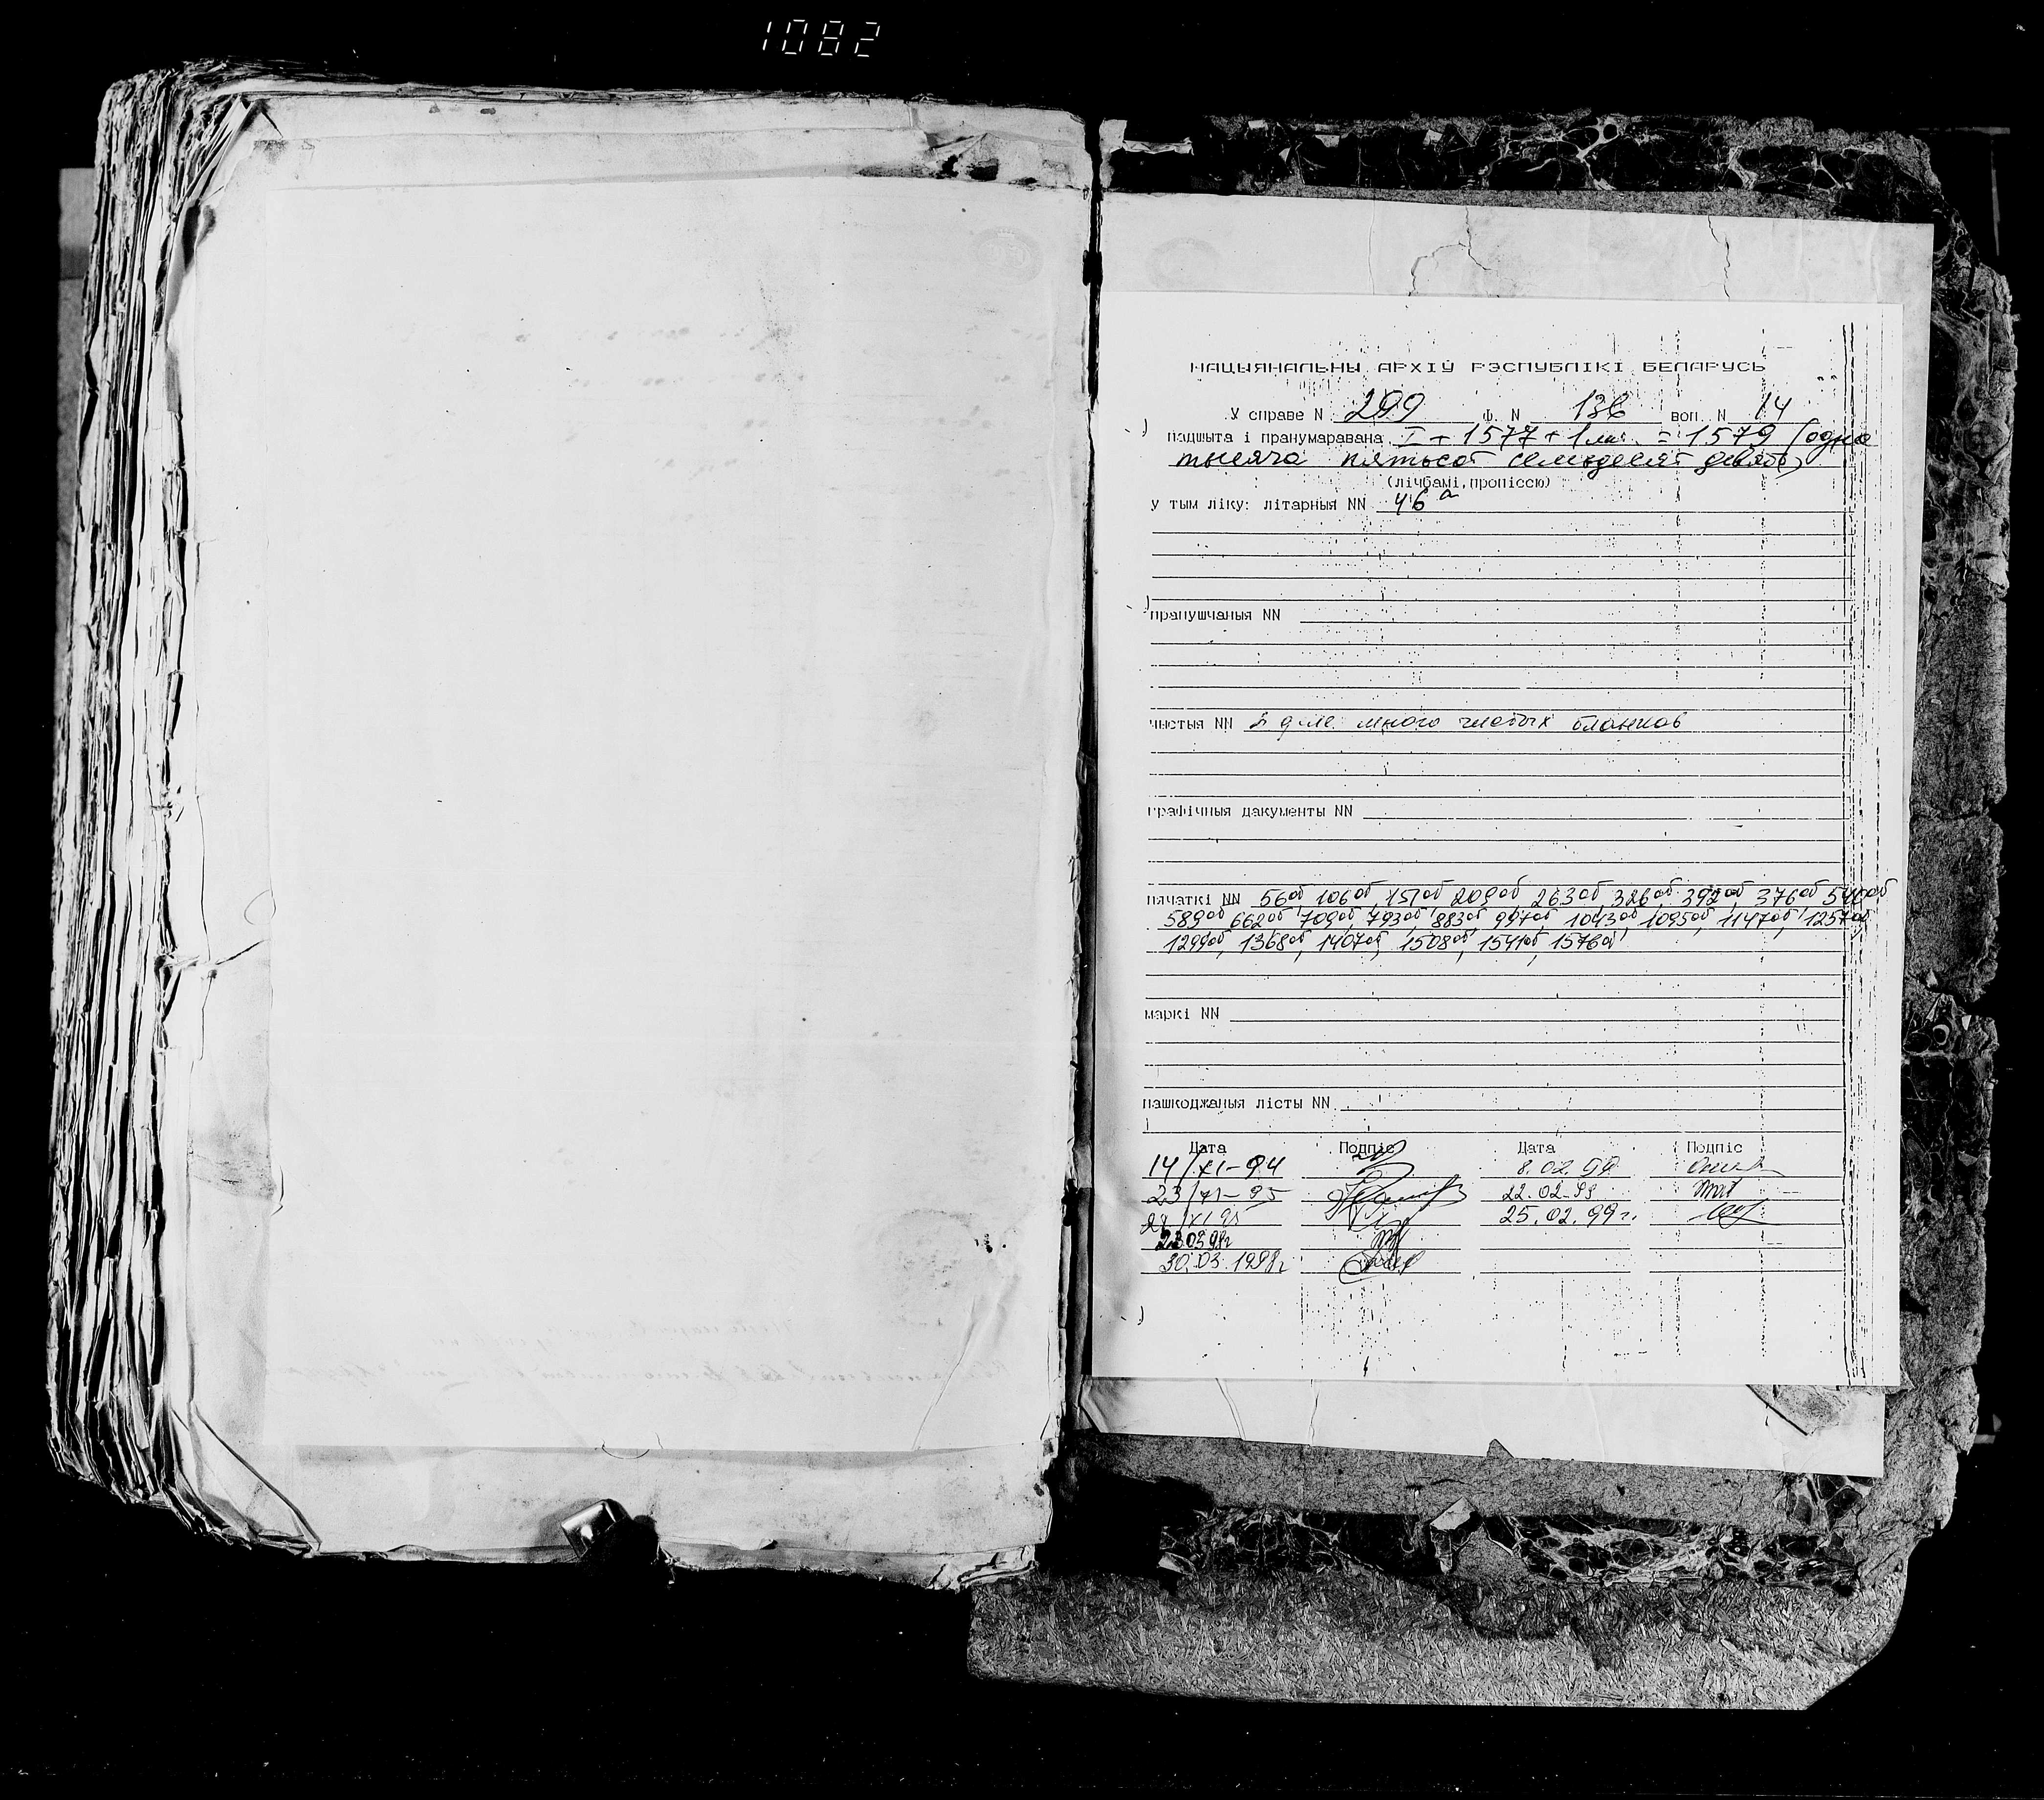 1082
НАЦЫЯНАЛЬНЫ АРХІЎ РЭСПУБЛІКІ БЕЛАРУСЬ
У справе N 299 ф. N 136 воп. N 14
падшыта і пранумаравана I + 1577 + 1 лит. = 1579 (одна
тысяча пятьсот семьдесят девять)
(лічбамі, пропіссю)
у тым ліку: літарныя NN 46а
прапушчаныя NN
чыстыя NN В деле много чистых бланков
графічныя дакументы NN
пячаткі NN 56об, 106об, 151об, 209об, 263об, 326об, 392об, 376об, 540об
589об, 662об, 709об, 793об, 883об, 997об, 1043об, 1095об, 1147об, 1257об,
1299об, 1368об, 1407об, 1508об, 1541об, 1576об
маркі NN
пашкоджаныя лісты NN
Дата Подпіс Дата Подпіс
14/XI-94 8.02.99
23/XI-95 22.02.99
XI 95 25.02.99г.
23.03.98г
30.03.1998г